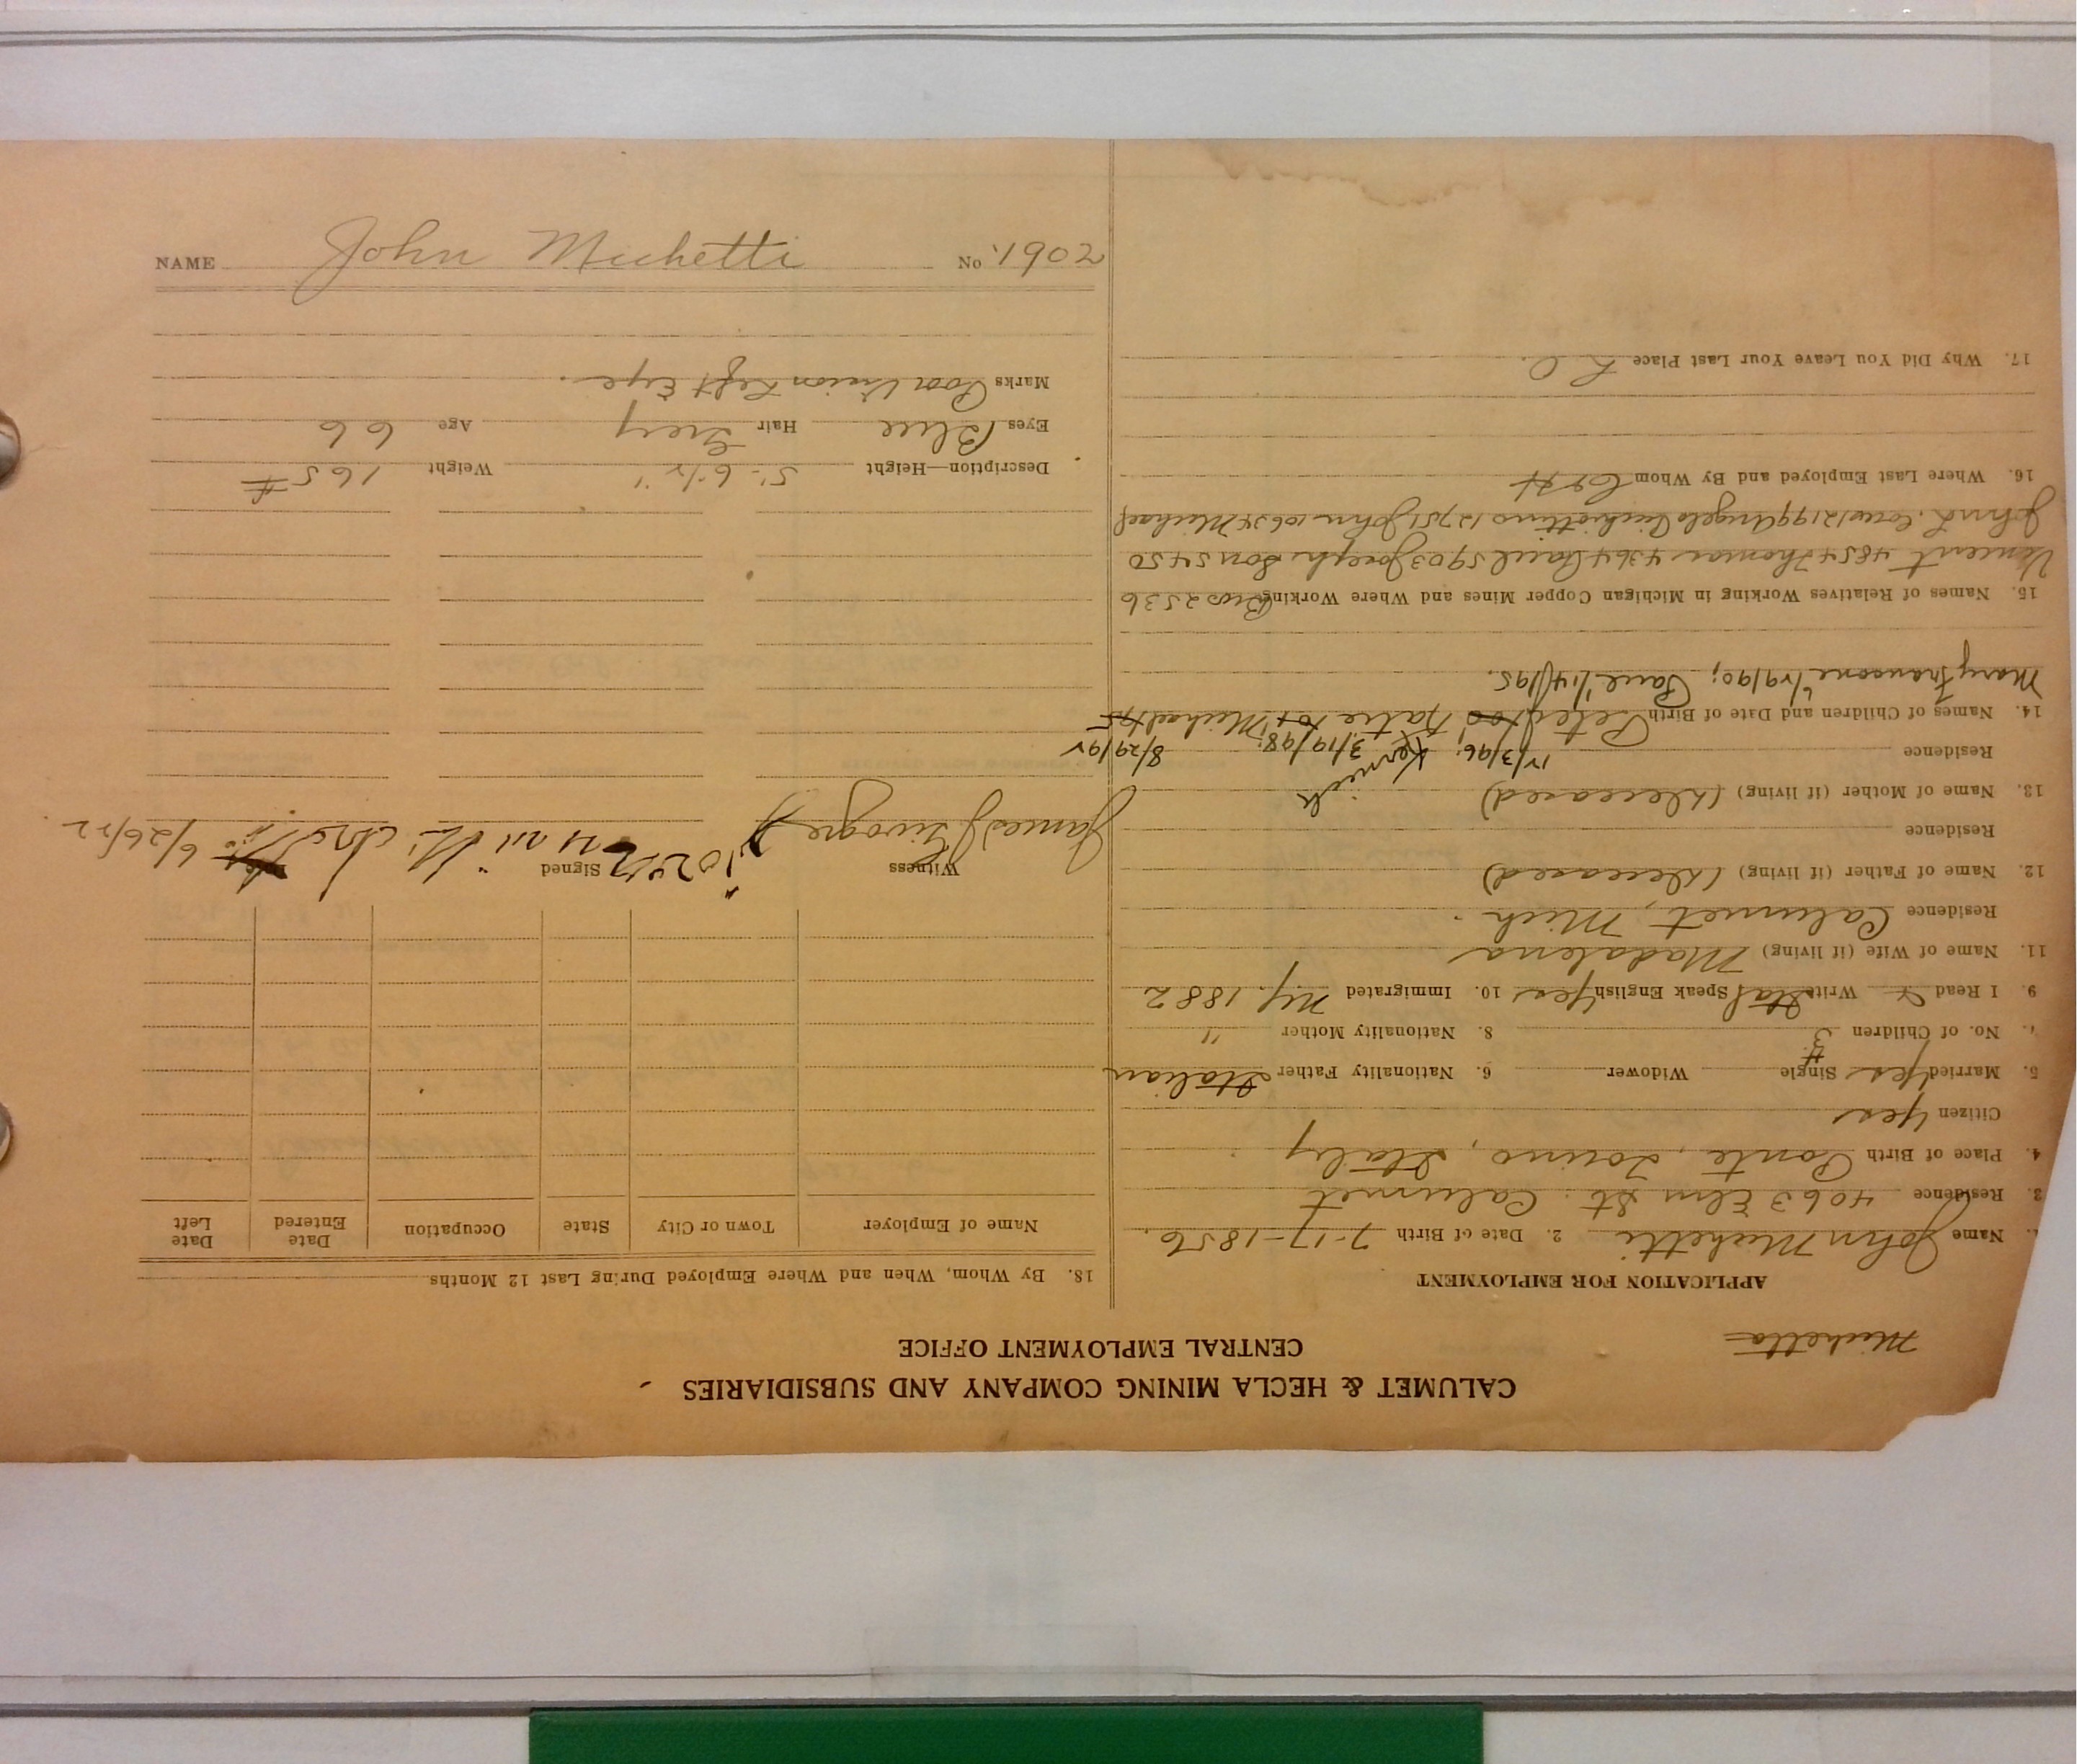 CALUMET & HECLA MINING COMPANY AND SUBSIDIARIES
CENTRAL EMPLOYMENT OFFICE
APPLICATION FOR EMPLOYMENT
Name John Michetti 2. Date of Birth 7-17-1856.
3. Residence 4063 Elm St. Calumet
4. Place of Birth Ponte, Torino, Italy
Citizen Yes
5. Married Yes Single Widower 6. Nationality Father Italian
No. of Children 3 8. Nationality Mother "
9. I Read & Write Ital Speak English Yes 10. Immigrated Ny. 1882
11. Name of Wife (if living) Madalena
Residence Calumet, Mich.
12. Name of Father (if living) (Deceased)
Residence
13. Name of Mother (if living) (Deceased)
Residence 12/3/96; 3/19/98; 8/29/92
14. Names of Children and Date of Birth Peter Katie Michael
Mary 6/29/90; Paul 1/14/95.
15. Names of Relatives Working in Michigan Copper Mines and Where Working Bros 2536
Vincent 4854 Thomas 4364 Paul 5903 Joseph Son 5450
John L. 12199 Angelo 12751 John 10634 Michael
16. Where Last Employed and By Whom C&H
17. Why Did You Leave Your Last Place L O.
18. By Whom, When and Where Employed During Last 12 Months
Name of Employer Town or City State Occupation Date Entered Date Left
Witness Signed Date 6/26/22
James
Description—Height 5'-6 1/2" Weight 165 #
Eyes Blue Hair Grey Age 66
Marks Poor Vision Left Eye.
NAME John Michetti No. 1902